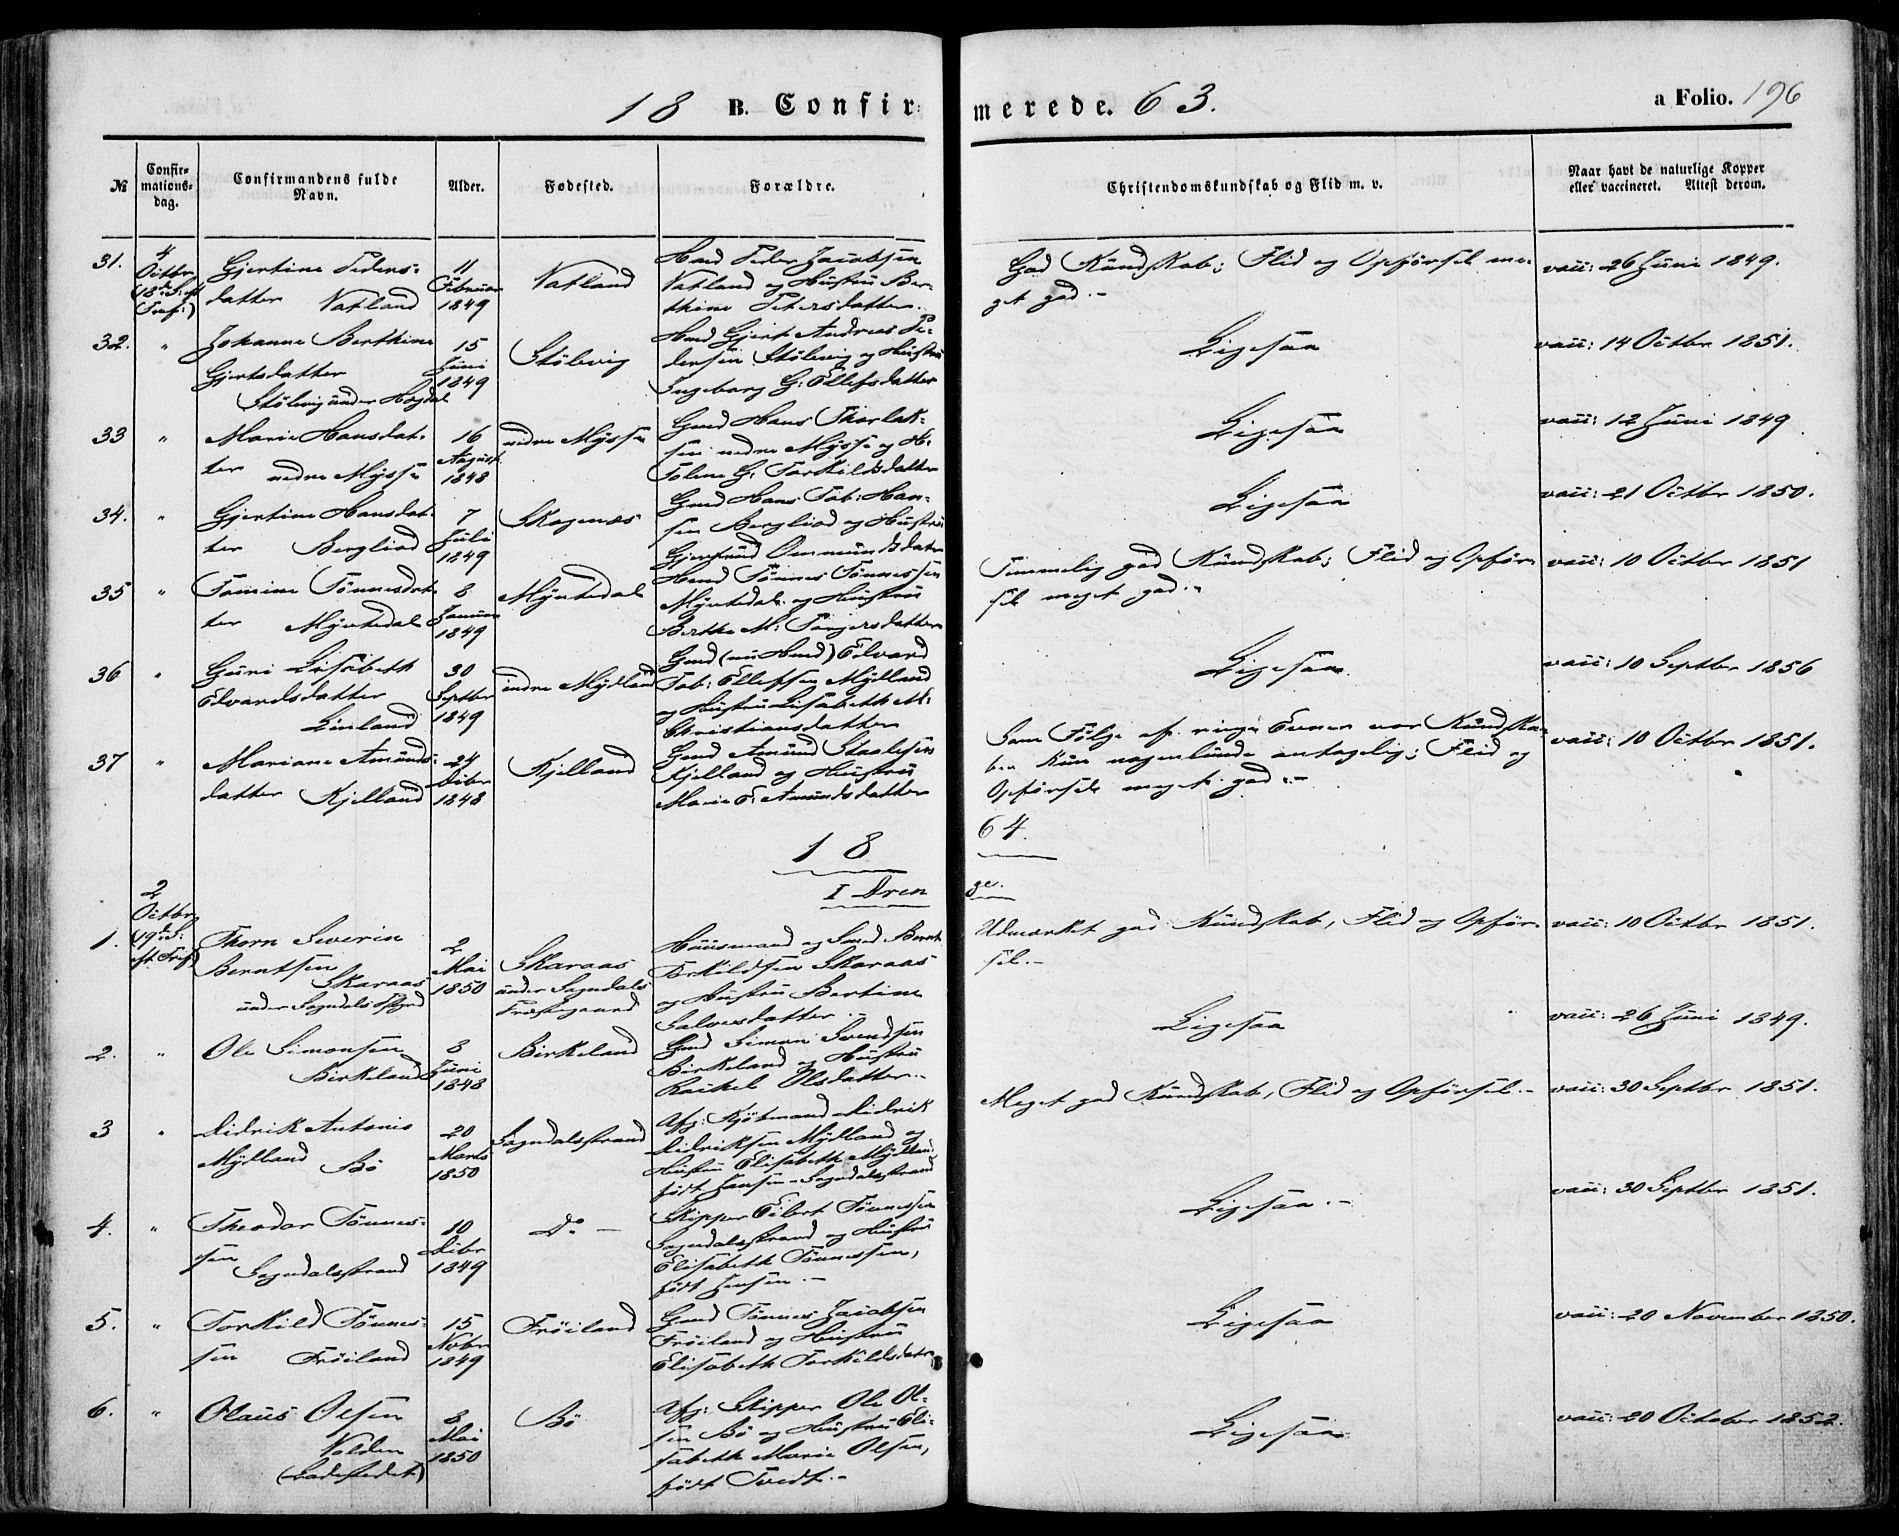 18 B. Confir: merede. 63. a Folio. 196
№ Confir-mations-dag. Confirmandens fulde Navn. Alder. Fødested. Forældre. Christendomskundskab og Flid m. v. Naar havt de naturlige Kopper eller vaccineret. Attest derom.
31. 4 Octbr
(18de S: eft
Tref:)
Gjertine Peders-
datter Natland
11
Februar
1849
Natland
Hmd Peder Jacobsen
Natland og Hustru Ber-
thine Petersdatter.
God Kundskab; Flid og Opførsel me-
get god.-
vacc: 26 Juni 1849.
32. "
Johanne Berthine
Gjertsdatter
Stölevig under Hogdal
15
Juni
1849
Stölevig
Hmd Gjert Andreas Pe-
dersen Stölevig og Hustru
Ingeborg G: Ellefsdatter
Ligesaa
vacc: 14 Octbr 1851.
33 "
Marie Hansdat-
ter nedre Mysse
16
August
1848
nedre Mysse
Gmd Hans Thorlak-
sen nedre Mysse og H:
Tolene G: Torkildsdatter
Ligesaa
vacc: 12 Juni 1849
34. "
Gjertine Hansdat-
ter Bergliod
7
Juli
1849
Skagenæs
Gmd Hans Tob: Han-
sen Bergliod og Hustru
Gjertrud Ommundsdater
Ligesaa
vacc: 21 Octbr 1850.
35 "
Tomine Tönnesdat-
ter Myntedal
8
Januar
1849
Myntedal
Hmd Tönnes Tönnessen
Myntedal og Hustru
Berthe M: Torgersdatter
Temmelig god Kundskab; Flid og Opför-
sel meget god.-
vacc: 10 Octbr 1851
36 "
Guri Lisabeth
Edvardsdatter
Linland
30
Septbr
1849
indre Mydland
Gmd (nu Hmd) Edvard
Tob: Ellefsen Mydland
og Hustru Lisabeth M:
Christiansdatter
Ligesaa.
vacc: 10 Septbr 1856
37 "
Mariane Amunds-
datter Kjelland
24
Dcbr
1848
Kjelland
Gmd Amund Staalesen
Kjelland og Hustru
Marie E: Amundsdatter
Som Følge af ringe Evner var Kundska-
ben kun nogenlunde antagelig; Flid og
Opførsel meget god.-
vacc: 10 Octbr 1851.
18 64.
I Dren ge.
1. 2
Octbr
(19de S:
eft Tref)
Thorn Severin
Berntsen
Skaraas
under Sogndals Pstgrd
2
Mai
1850
Skaraas
under Sogndals
Præstegaard
Huusmand og Smed Bernt
Torkildsen Skaraas
og Hustru Bertine
Salvesdatter.-
Udmærket god Kundskab, Flid og Opför-
sel.-
vacc: 10 Octbr 1851.
2. "
Ole Simonsen
Birkeland
8
Juni
1848
Birkeland
Gmd Simon Svendsen
Birkeland og Hustru
Rachel Olsdatter.-
Ligesaa
vacc: 26 Juni 1849.
3 "
Didrik Antonio
Mydland Bö
20
Marts
1850
Sogndalsstrand
Afg: Kjöbmand Didrik
Didriksen Mydland og
Hustru Elisabeth Mydland,
født Jansen - Sogndalsstrand
Meget god Kundskab, Flid og Opførsel.-
vacc: 30 Septbr 1851.
4. "
Theodor Tönnes-
sen
Sogndalsstrand
10
Dcbr
1849
Do -
Skipper Eilert Tönnessen
Sogndalsstrand og Hustru
Elisabeth Tönnessen,
født Jensen.-
Ligesaa.-
vacc: 30 Septbr 1851.
5. "
Torkild Tönnes-
sen Fröiland
15
Novbr
1849
Fröiland
Gmd Tönnes Jacobsen
Fröiland og Hustru
Elisabeth Torkildsdater
Ligesaa
vacc: 20 November 1850.
6. "
Olaus Olsen
Valden
(Ladestedet)
8
Mai
1850
Bö
Afg: Skipper Ole Ol-
sen Bö og Hustru Eli-
sabeth Marie Olsen,
født Tvedt.-
Ligesaa
vacc: 20 October 1852.